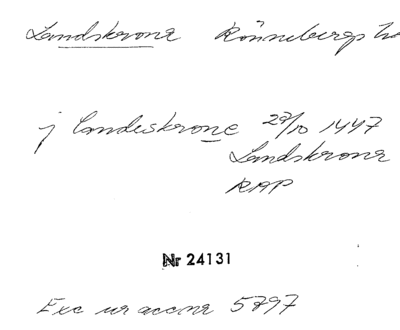 Landskrona Rönnebergs h
j landeskrone 27/10 1447
Landskrona
RAP
Nr 24131
Exc ur accnr 5797